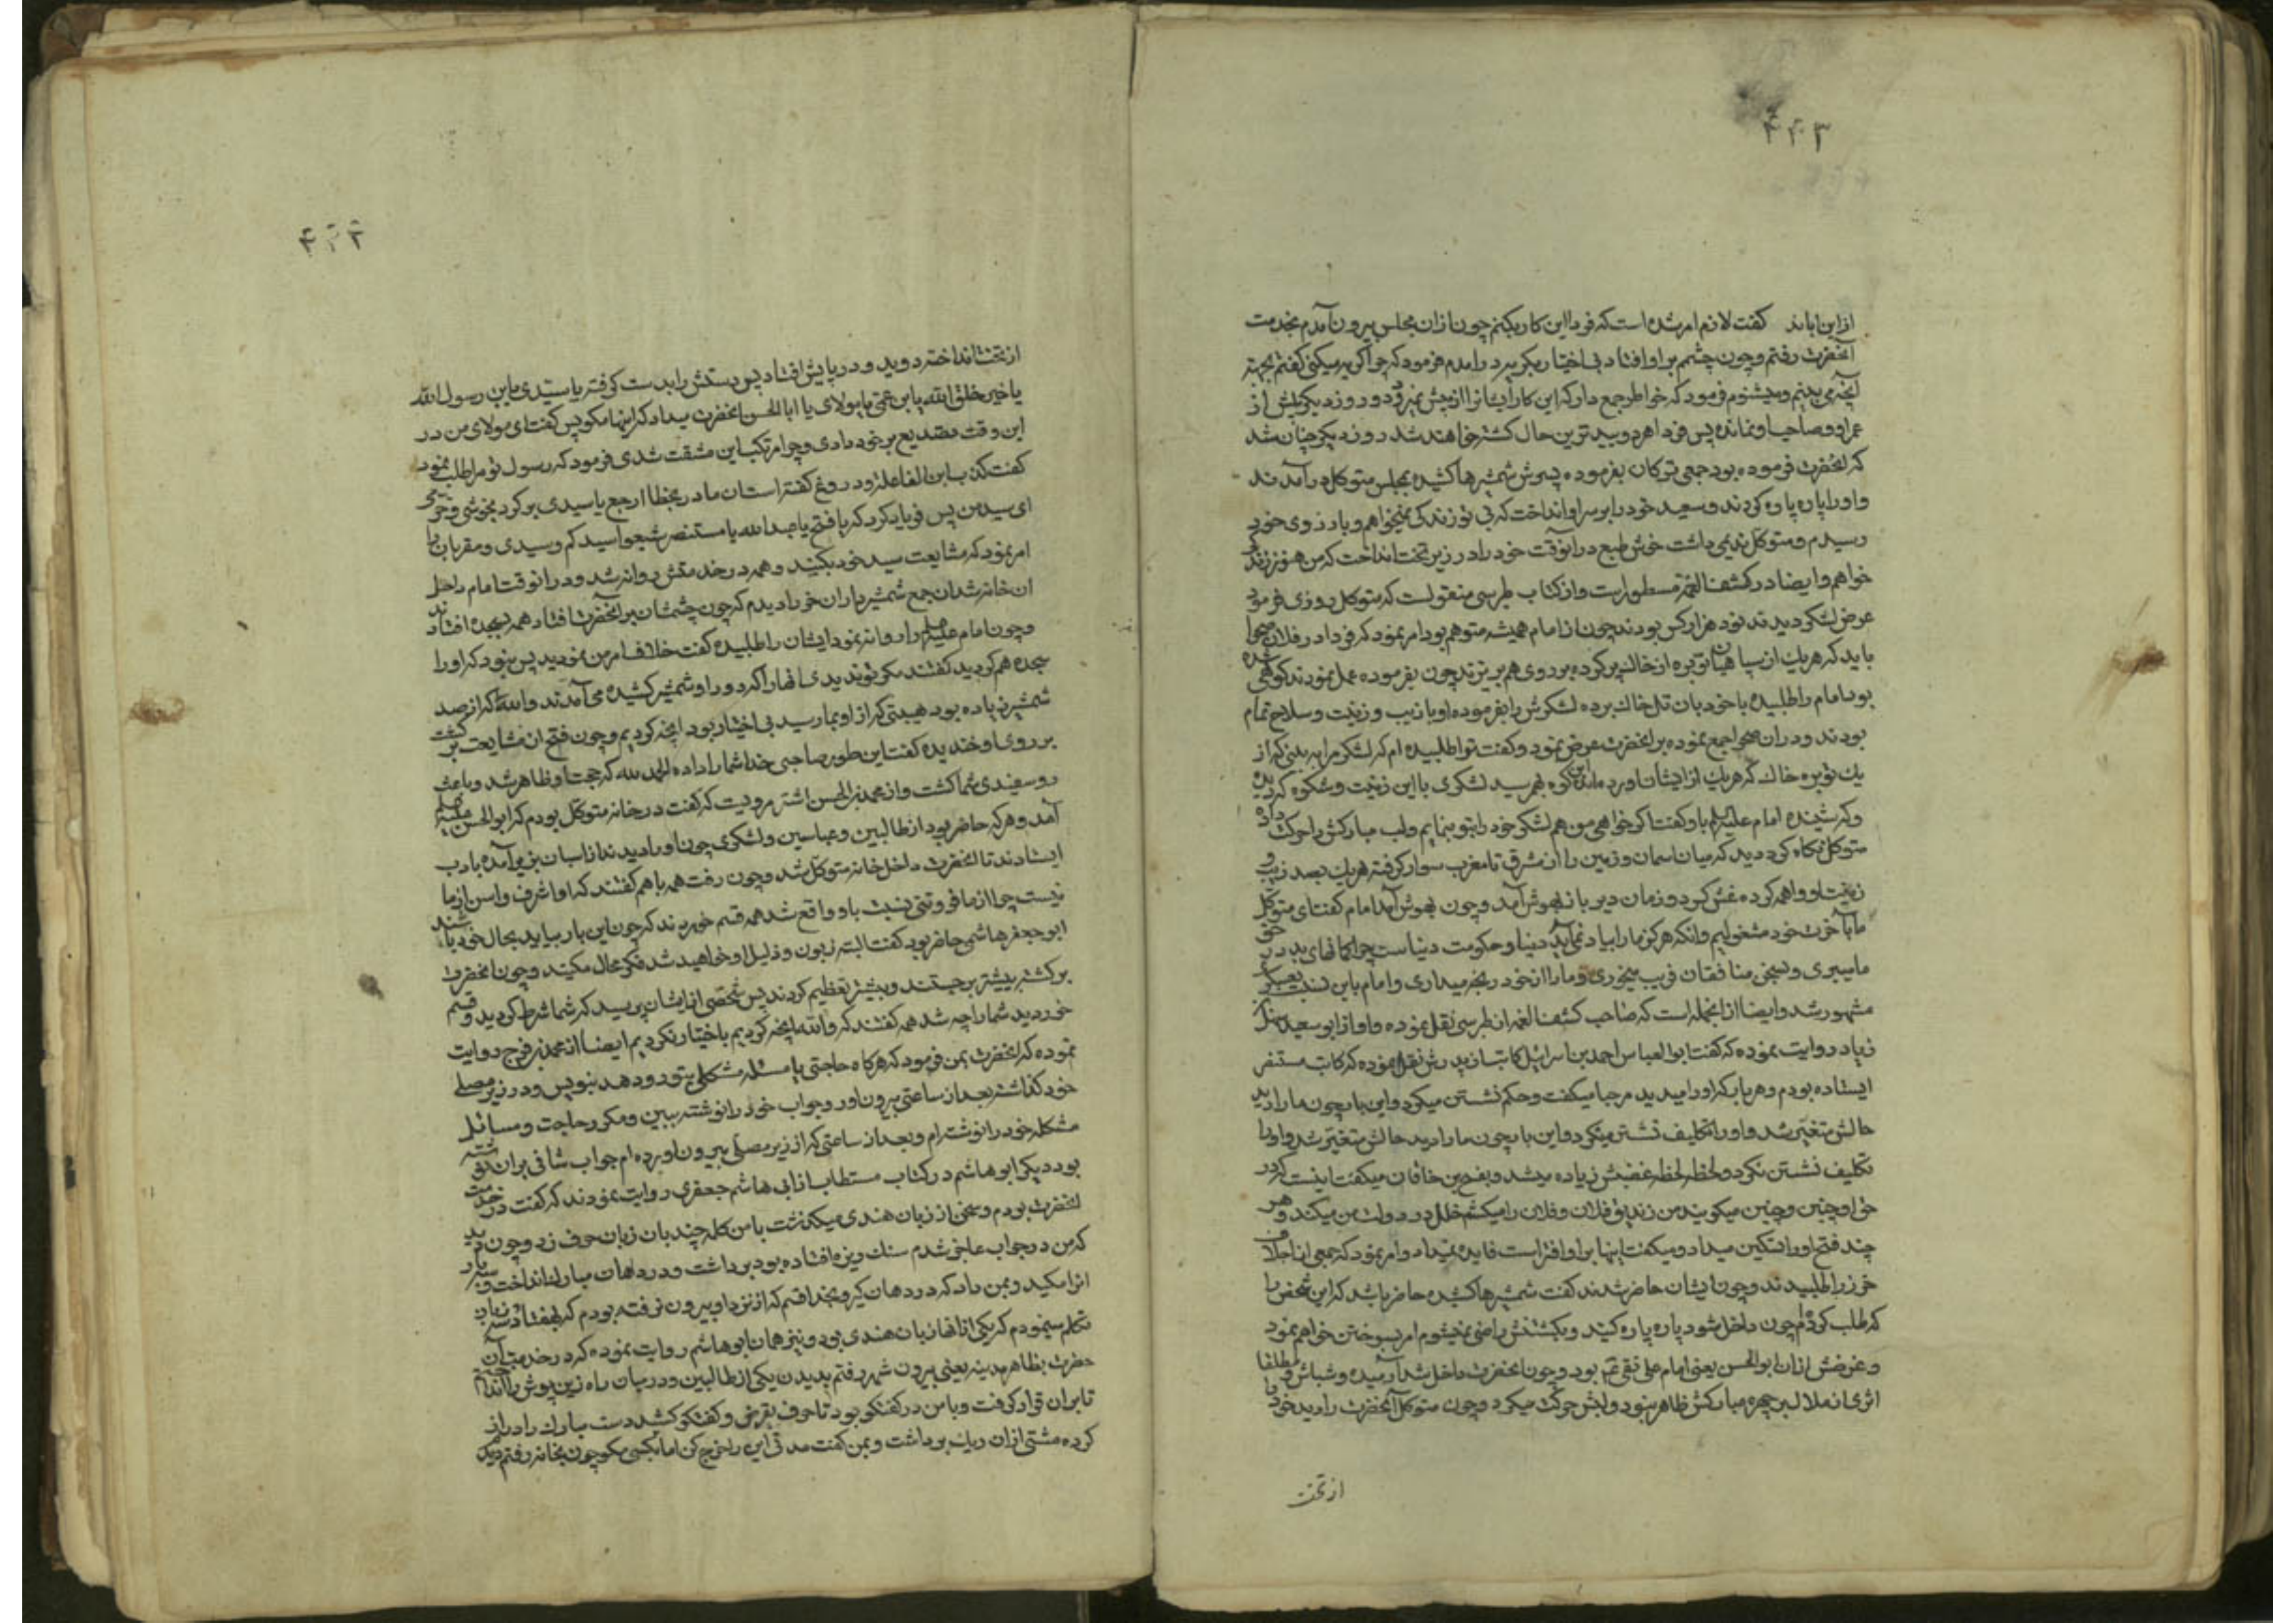 ۴۴۳
از این اباند گفت لازم امر شده است که فردا این کار بکنم چون ازان مجلس بیرون آمدم بخدمت
آنحضرت رفتم و چون چشم بر او افتاد بی اختیار بگریه درامدم فرمود که چرا گریه میکنی گفتم بجهة
آنچه می بینم و میشنوم فرمود که خواطر جمع دار که این کار ایشانرا از پیش نمیرود و دو روز دیگر بیش از
عمر او و صاحب او نمانده پس فردا هر دو ببدترین حال کشته خواهند شد روز دیگر چنان شد
که انحضرت فرموده بود جمعی ترکان بفرموده پسرش شمشیرها کشیده بمجلس متوکل درآمدند
و او را پاره پاره کردند و سعید خود را بر سر او انداخت که بی تو زندگی نمیخواهم و بارزوی خود
رسیدم و متوکل ندیمی داشت خوش طبع درآنوقت خود را در زیر تخت انداخت که من هنوز زندگی
خواهم و ایضا در کشف الغمه مسطور است و از کتاب طبرسی منقولست که متوکل روزی فرمود
عرض لشکر دیدند نود هزار کس بودند چون از امام همیشه متوهم بود امر نمود که فردا در فلان صحرا
باید که هر یک از سپاهیان توبره از خاک پر کرده بر روی هم بریزند چون بفرموده عمل نمودند کوهی شده
بود امام را طلبیده با خود بان تل خاک برده لشکرش را بفرموده او با زیب و زینت و سلاح تمام
بودند و دران صحرا جمع نموده بر انحضرت عرض نمود و گفت ترا طلبیده ام که لشکر مرا به بینی که از
یک توبره خاک که هر یک از ایشان اورده‌اند این کوه بهم رسید لشکری با این زینت و شکوه که دیده
و که شنیده امام علیه السلم باو گفت اگر خواهی من هم لشکر خود را بتو بنمایم و لب مبارکش را حرکت داد
متوکل نگاه کرد دید که میان اسمان و زمین را از مشرق تا مغرب سوار گرفته هر یک بصد زیب و
زینت او واهمه کرده غش کرد و زمان دیر باز بهوش آمد و چون بهوش آمد امام گفت ای متوکل
ما بآخرت خود مشغولیم و انکه هرگز ما را بیاد نمی آید دنیا و حکومت دنیاست چرا گمانهای بد در حق
ما میبری و بسخن منافقان فریب میخوری و ما را از خود رنجه میداری و امام باین
مشهور شد و ایضا از انجمله است که صاحب کشف الغمه از طبرسی نقل نموده و او از ابو سعید سهل
زیاد روایت نموده که گفت ابو العباس احمد بن اسرائیل کاتب از پدرش نقل نموده که کاتب مستنصر
ایستاده بودم و هر بار که او را میدید مرحبا میگفت و حکم نشستن میکرد و این بار چون ما را دید
حالش متغیر شد و او را تکلیف نشستن میکرد و این بار چون ما را دید حالش متغیر شد و او را
تکلیف نشستن نکرد و لحظه لحظه غضبش زیاده میشد و بفتح بن خاقان میگفت اینست که در
حق او چنین و چنین میگویند من زندیق فلان و فلان را میکشم خلل در دولت من میکند و هر
چند فتح او را تسکین میداد و میگفت اینها بر او افتراست فایده نمیداد و امر نمود که جمعی از اجلاف
خزر را طلبیدند و چون ایشان حاضر شدند گفت شمشیرها کشیده حاضر باشد که این شخص را
که طلب کرده‌ام چون داخل شود پاره پاره کنید و بکشتنش راضی نمیشوم امر بسوختن خواهم نمود
و غرضش ازان ابو الحسن یعنی امام علی نقی ع بود و چون انحضرت داخل شد آرمیده و مطلقا
اثری از ملال بر چهره مبارکش ظاهر نبود و لبش حرکت میکرد و چون متوکل آنحضرت را دید خود را
از تخت
۴۴۴
از تخت انداخته دوید و در پایش افتاد پس دستش را بدست گرفته یا سیدی یا بن رسول الله
یا خیر خلق الله یا بن عمی یا مولای یا ابا الحسن انحضرت میداد که اینها مگو پس گفت ای مولای من در
این وقت تصدیع بر خود دادی و چرا مرتکب این مشقت شدی فرمود که رسول تو مرا طلب نمود
گفت کذب ابن الفاعله زود دروغ گفته است ان مادر بخطا ارجع یا سیدی برگرد بخوشی و خرمی
ای سید من پس فریاد کرد که یا فتح یا عبدالله یا مستنصر شیعوا سیدکم و سیدی و مقربان را
امر نمود که مشایعت سید خود بکنید و همه در خدمتش روانه شد و درانوقت امام داخل
ان خانه شد ان جمع شمشیرداران خزر را دیدم که چون چشمشان بر انحضرت افتاد همه بسجده افتادند
و چون امام علیه السلم را روانه نمود ایشان را طلبیده گفت خلاف امر من نمودید پس نبود که او را
سجده هم کردید گفتند مگر تو ندیدی انها را گرد و را و شمشیر کشیده می آمدند والله که از صد
شمشیر زیاده بود هیبتی که از او بما رسید بی اختیار بود انچه کردیم و چون فتح ان مشایعت برگشت
بر روی او خندیده گفت این طور صاحبی خدا شما را داده الحمد لله که حجت او ظاهر شد و باعث
رو سفیدی شما گشت و از محمد بن الحسن اشتر مرویست که گفت در خانه متوکل بودم که ابو الحسن علیه السلم
آمد و هر که حاضر بود از طالبین و عباسین و لشکری چون او را دیدند از اسبان بزیر آمده بادب
ایستادند تا انحضرت داخل خانه متوکل شد و چون رفت همه با هم گفتند که او اشرف و اسن از ما
نیست چرا از ما فروتنی نسبت باو واقع شد همه قسم خوردند که چون این بار بیاید بحال خود باشند
ابو جعفر هاشمی حاضر بود گفت البته زبون و ذلیل او خواهید شد فکر محال مکنید و چون انحضرت
برگشت پیشتر برجستند و بیشتر تعظیم کردند پس شخصی از ایشان پرسید که شما شرط کردید و قسم
خوردید شما را چه شد همه گفتند که والله انچه کردیم باختیار نکردیم ایضا از محمد بن فرج روایت
نموده که انحضرت بمن فرمود که هرگاه حاجتی یا مسئله مشکلی بتو رو دهد بنویس و در زیر مصلی
خود گذاشته بعد از ساعتی بیرون اور و جواب خود را نوشته ببین و مکرر حاجت و مسائل
مشکله خود را نوشته‌ام و بعد از ساعتی که از زیر مصلی بیرون اورده‌ام جواب شافی بران نوشته
بود دیگر ابو هاشم در کتاب مستطاب از ابی هاشم جعفری روایت نمودند که گفت در خدمت
انحضرت بودم و سخن از زبان هندی میگذشت با من کلمه چند بان زبان حرف زد و چون دید
که من در جواب عاجز شدم سنک ریزه افتاده بود برداشت و در دهان مبارک انداخت و سه بار
انرا مکید و بمن داد که در دهان گیر و بخدا قسم که از نزد او بیرون نرفته بودم که بهفتاد و سه زبان
تکلم مینمودم که یکی ازانها زبان هندی بود و نیز همان ابو هاشم روایت نموده که در خدمت آن
حضرت بظاهر مدینه یعنی بیرون شهر رفتم بدیدن یکی از طالبین و درمیان راه زین پوش را
تا بران قرار گرفت و با من در گفتگو بود تا حرف بقرض و گفتگو کشید دست مبارک را دراز
کرده مشتی ازان ریک برداشت و بمن گفت مدتی این را خرج کن اما بکسی مگو چون بخانه رفتم دیدم